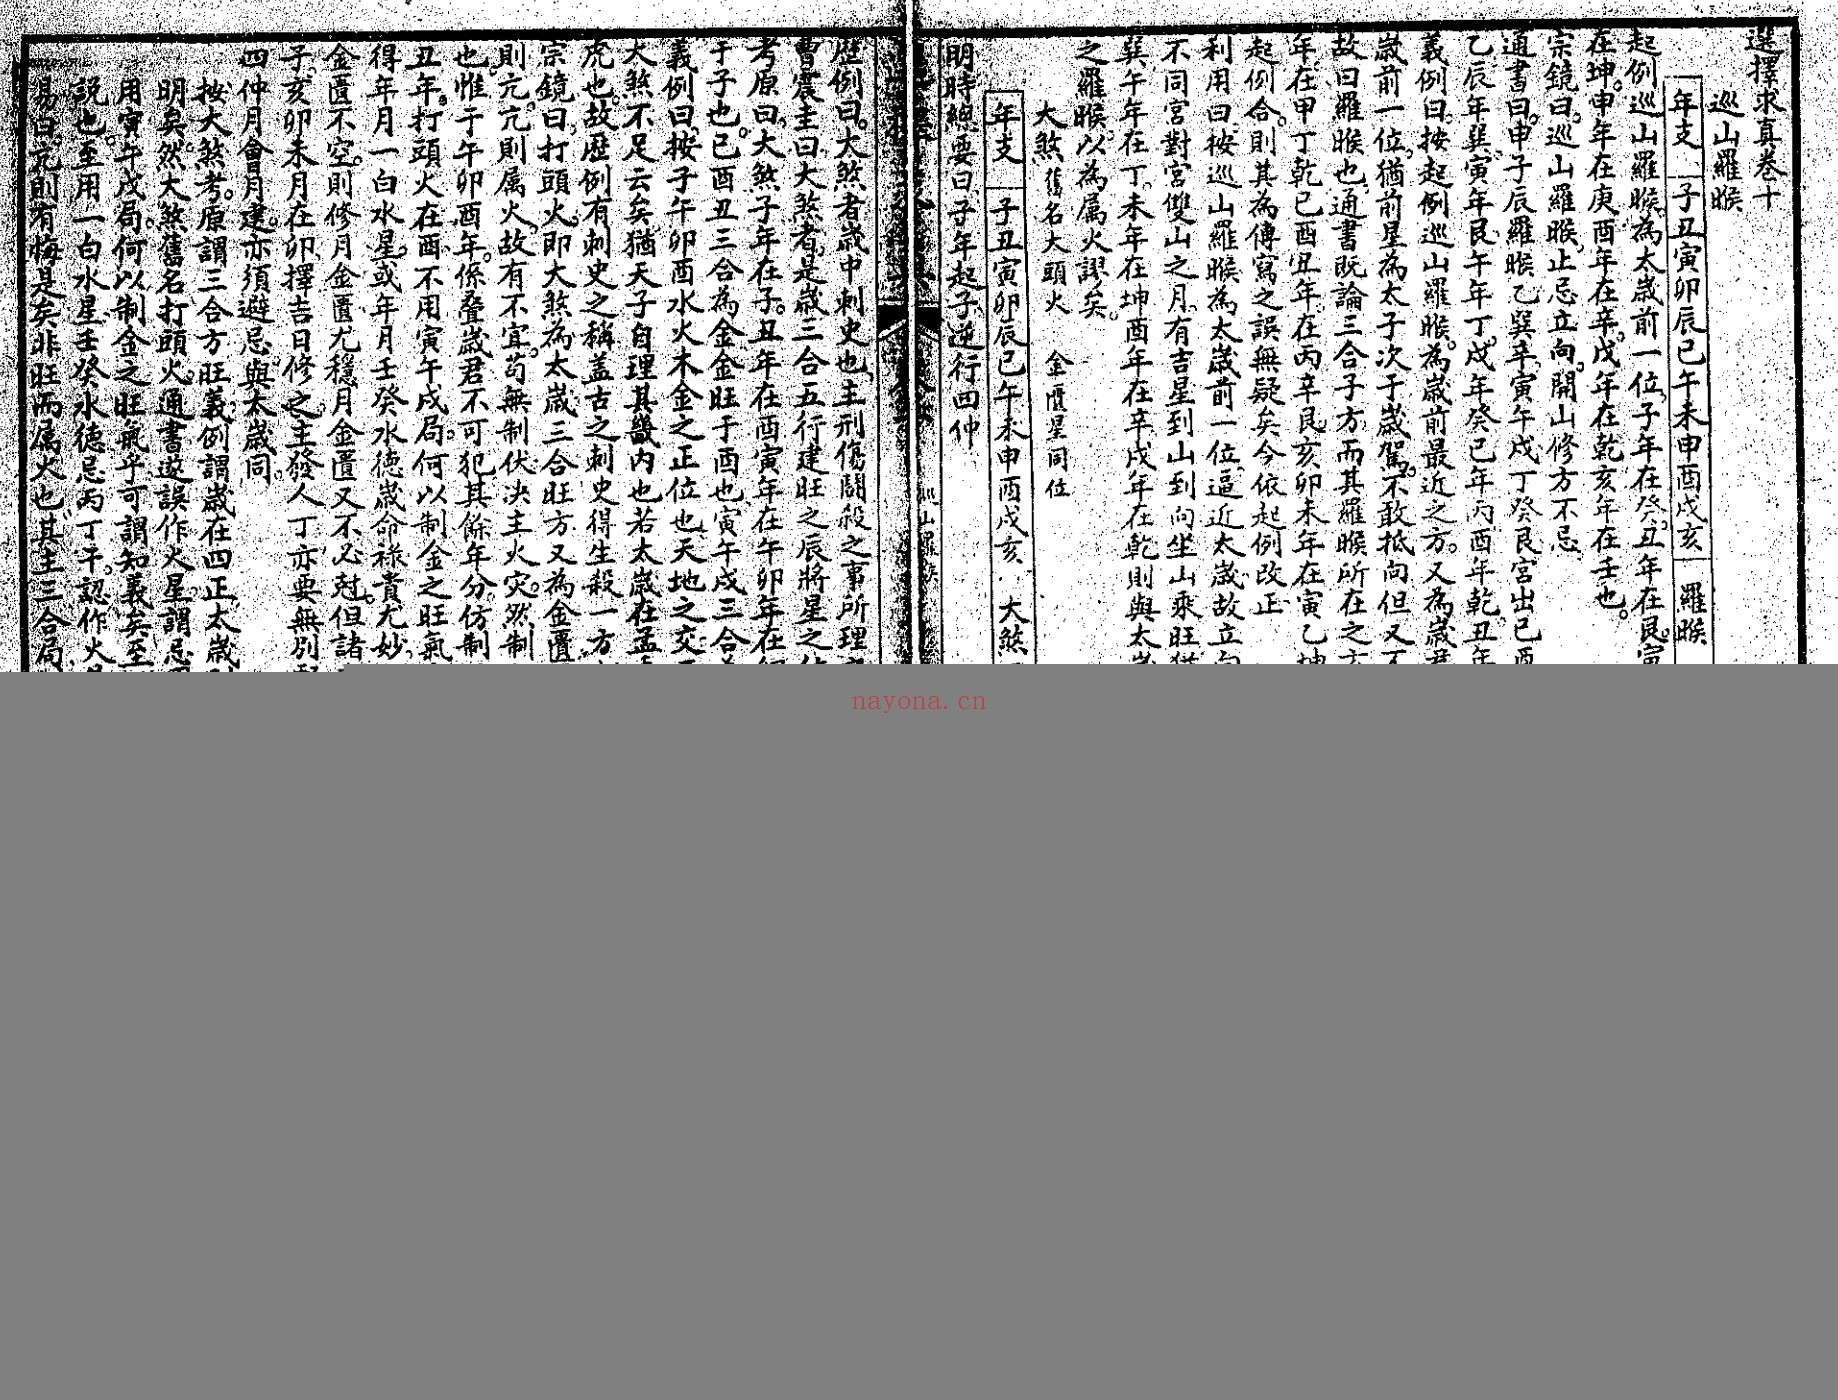 選擇求真卷十
巡山羅㬋
年支 子丑寅卯辰巳午未申酉戌亥 羅㬋
起例巡山羅㬋為太歲前一位子年在癸丑年在艮寅
在坤申年在庚酉年在辛戌年在乾亥年在壬也
宗鏡曰巡山羅㬋止忌立向開山修方不忌
通書曰申子辰羅㬋乙巽辛寅午戌丁癸艮宮出巳酉
乙辰年巽寅年艮午年丁戌年癸巳年丙酉年乾丑年
義例曰按起例巡山羅㬋為歲前最近之方又為歲君
歲前一位猶前星為太子次于歲駕不敢抵向但又不
故曰羅㬋也通書既論三合子方而其羅㬋所在之方
年在甲丁乾巳酉丑年在丙辛艮亥卯未年在寅乙坤
起例合則其為傳寫之誤無疑矣今依起例改正
利用曰按巡山羅㬋為太歲前一位逼近太歲故立向
不同宮對宮雙山之月有吉星到山到向坐山乘旺
巽午年在丁未年在坤酉年在辛戌年在乾則與太歲
之羅㬋以為属火謬矣
大煞 舊名大頭火 金匱星同位
年支 子丑寅卯辰巳午未申酉戌亥 大煞
明時總要曰子年起子逆行四仲
巡山羅㬋
歴例曰大煞者歲中刺史也主刑傷鬪殺之事所理
曹震圭曰大煞者是歲三合五行建旺之辰將星之
考原曰大煞子年在子丑年在酉寅年在午卯年在
于子也巳酉丑三合為金金旺于酉也寅午戌三合
義例曰按子午卯酉水火木金之正位也天地之交
大煞不足云矣猶天子自理其畿内也若太歲在孟
虎也故歴例有刺史之稱盖古之刺史得生殺一方
宗鏡曰打頭火即大煞為太歲三合旺方又為金匱
則亢亢則属火故有不宜苟無制伏决主火灾然制
也惟子午卯酉年係叠歲君不可犯其餘年分仿制
丑年打頭火在酉不用寅午戌局何以制金之旺氣
得年月一白水星或年月壬癸水德歲命禄貴尤妙
金匱不空則修月金匱尤穩月金匱又不必尅但諸
子亥卯未月在卯擇吉日修之主發人丁亦要無別
四仲月會月建亦須避忌與太歲同
按大煞考原謂三合方旺義例謂歲在四正太歲
明矣然大煞舊名打頭火通書遂誤作火星謂忌
用寅午戌局何以制金之旺氣乎可謂知義矣至
説也至用一白水星壬癸水德忌丙丁干認作火
易曰亢則有悔是矣非旺而属火也其主三合局
nayona.cn